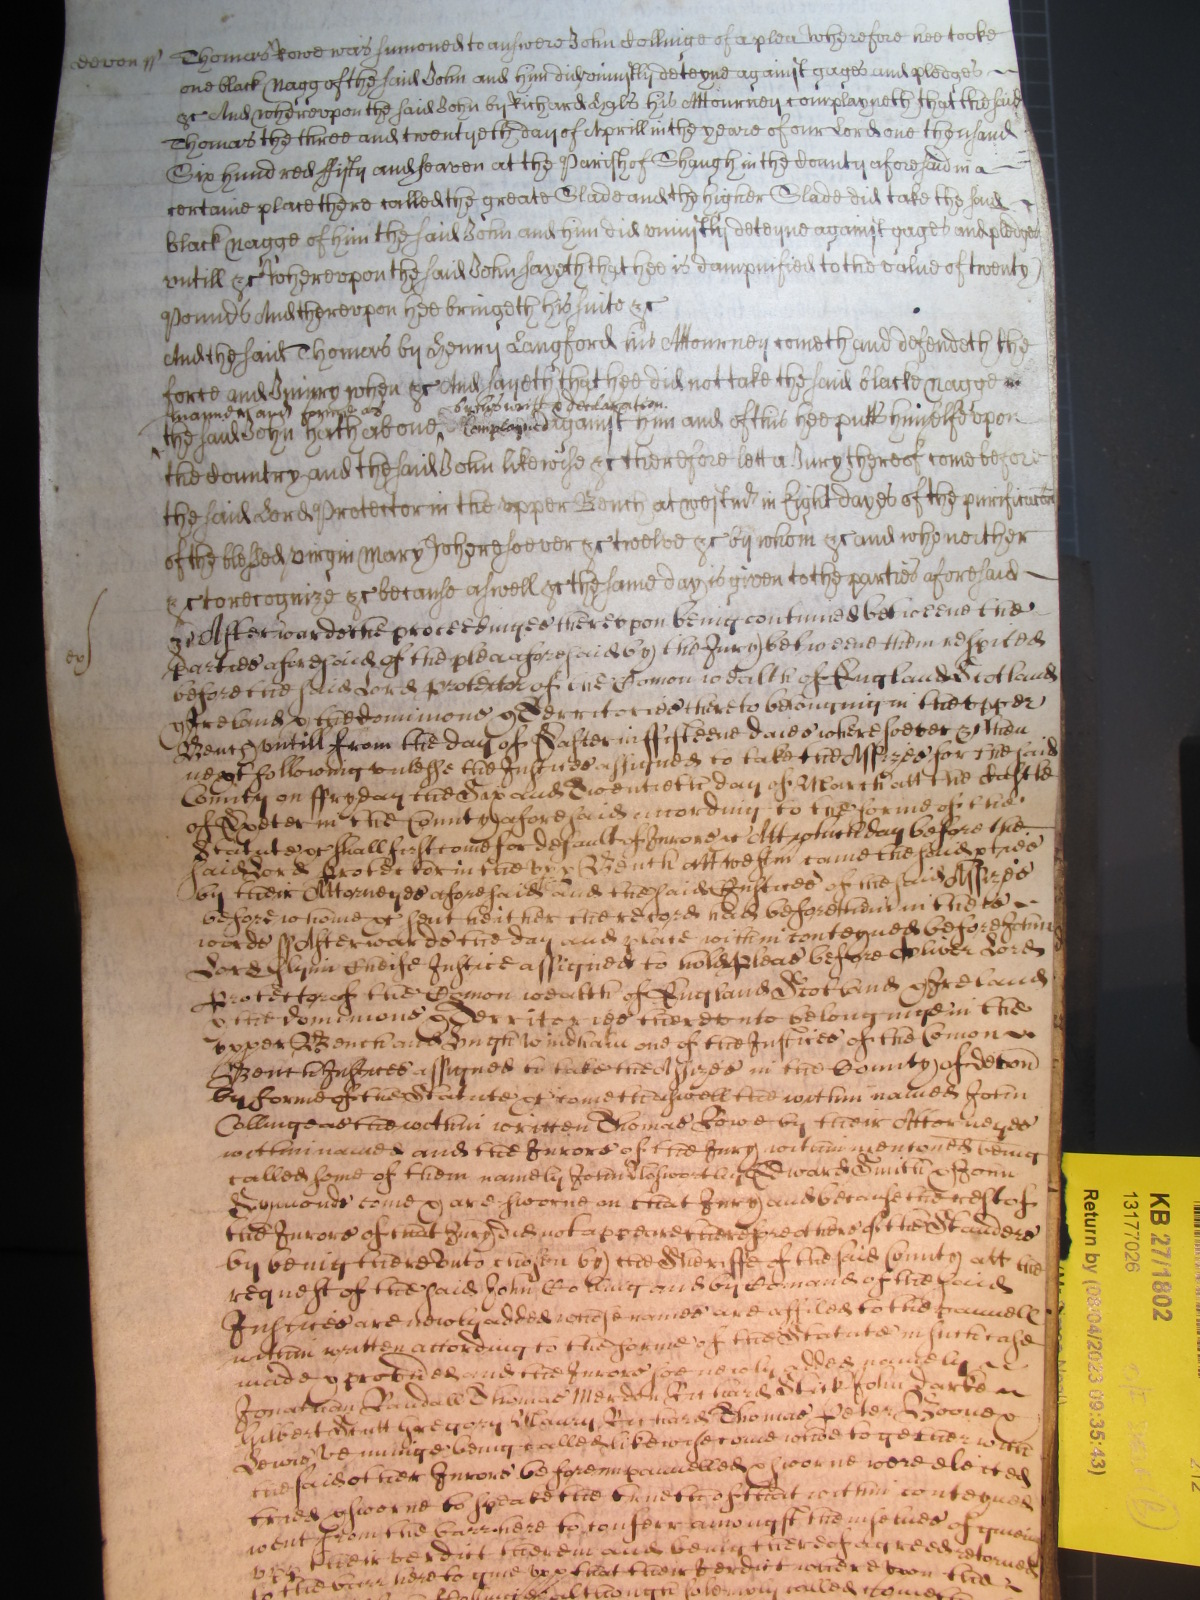 devon ss Thomas Rowe was sumoned to answere John Collinge of a plea wherefore hee tooke
one black Nagg of the said John and him did uniustly deteyne against gages and pledges
&c And whereupon the said John by Richard his Attourney complayneth that the said
Thomas the three and twentyeth day of Aprill in the yeare of our Lord one thousand
Six hundred ffifty and seaven at the Parish of Shaugh in the County aforesaid in a
certaine place there called the greate Slade and the higher Slade did take the said
black nagge of him the said John and him did uniustly deteyne against gages and pledges
untill &c Whereupon the said John sayeth that hee is dampnified to the value of twenty
Pounds And thereupon hee bringeth his suite &c
And the said Thomas by Henry Langford his Attourney cometh and defendeth the
force and Iniury when &c And sayeth that hee did not take the said blacke nagge
manner and forme as by his writt & declaration
the said John hath above Complayned against him and of this hee putts himselfe upon
the Country and the said John likewise &c therefore lett a Jury thereof come before
the said Lord Protector in the upper Bench at westmr in Eight dayes of the purificacon
of the blessed virgin Mary wheresoever &c twelve &c by whom &c and who neither
&c to recognize &c because aswell &c the same day is given to the parties aforesaid
&c Afterwards the proceedinges thereupon being continued betweene the
parties aforesaid of the plea aforesaid by the Jury betweene them respited
before the said Lord Protector of the Comon wealth of England Scotland
& Ireland & the dominions & Territories thereto belonging in the upper
Bench untill from the day of Easter in ffifteene daies wheresoever &c then
next following unlesse the Justices assigned to take the Assizes for the said
County on ffryday the Six and Twentieth day of March att the Castle
of Exeter in the County aforesaid according to the forme of the
Statute &c shall first come for default of Jurors &c Att which day before the
said Lord Protector in the upper Bench att westmr came the said pties
by their Attorneyes aforesaid and the said Justices of the said Assizes
before whome &c sent hether the record had before them in these
words ss Afterwards the day and place within conteyned before John
Lord Glynn Cheife Justice assigned to hold pleas before Oliver Lord
Protector of the Comon wealth of England Scotland & Ireland
& the dominions & Territories thereunto belonginge in the
upper Bench and Hugh Windham one of the Justices of the Comon
Bench Justices assigned to take the Assizes in the County of devon
by forme of the Statute &c come aswell the within named John
Collinge as the within written Thomas Rowe by their Attorneyes
within named and the Jurors of the Jury within mentioned being
called some of them namely John Edward Smith & John
Symonds come & are sworne on that Jury and because the rest of
the Jurors of that Jury did not appeare therefore others of the Standers
by being thereunto chosen by the Sheriffe of the said County att the
request of the said John Colling and by Comand of the said
Justices are newly added whose names are affiled to the pannell
within written according to the forme of the Statute in such case
made & provided and the Jurors soe newly added namely
Jonathan Randall Thomas Richard John Darke
Gilbert Gregory Richard Thomas Peter
Lewis being called likewise come whoe together with
the said other Jurors before impannelled & sworne were elected
tried & sworne to speake the trueth of that within conteyned
went from the barr here to conferr amongst themselves of giveing
upp their verdict therein and being thereof agreed retorned
to the barr here to give upp that their verdict whereupon the
Collinge although solemnly called cometh
ex
KB 27/1802
13177026
Return by (08/04/2023 09:35:43)